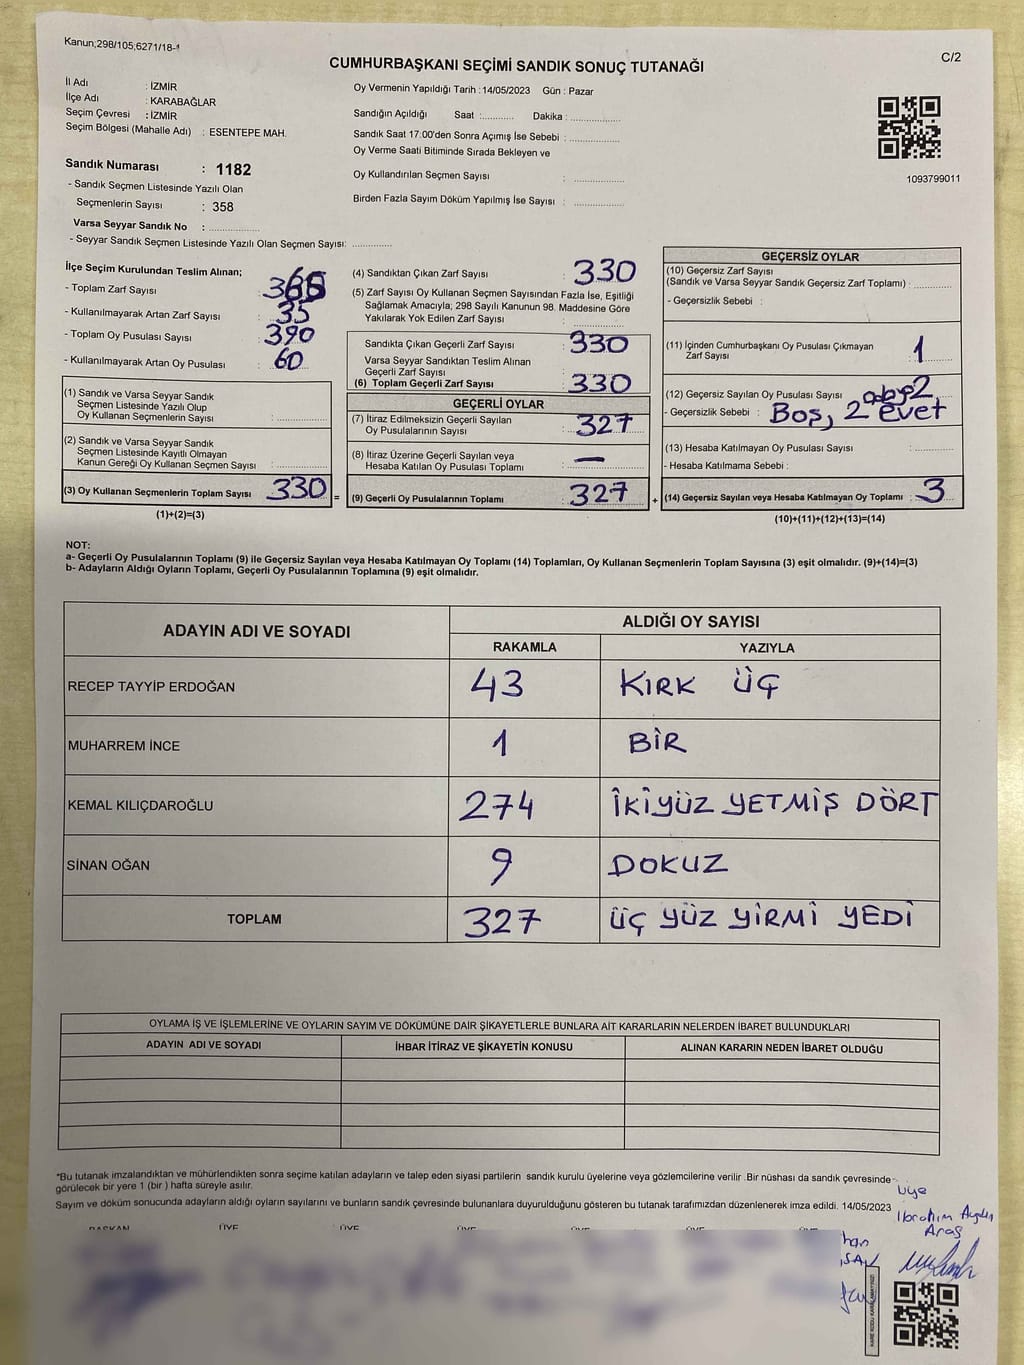 Kanun;298/105;6271/18-1
C/2
CUMHURBAŞKANI SEÇİMİ SANDIK SONUÇ TUTANAĞI
İl Adı : İZMİR
İlçe Adı : KARABAĞLAR
Seçim Çevresi : İZMİR
Seçim Bölgesi (Mahalle Adı) : ESENTEPE MAH.
Oy Vermenin Yapıldığı Tarih : 14/05/2023 Gün : Pazar
Sandığın Açıldığı Saat :.......... Dakika :................
Sandık Saat 17:00'den Sonra Açımış İse Sebebi :................
Oy Verme Saati Bitiminde Sırada Bekleyen ve
Oy Kullandırılan Seçmen Sayısı :................
Birden Fazla Sayım Döküm Yapılmış İse Sayısı :................
1093799011
Sandık Numarası : 1182
- Sandık Seçmen Listesinde Yazılı Olan
Seçmenlerin Sayısı : 358
Varsa Seyyar Sandık No :................
- Seyyar Sandık Seçmen Listesinde Yazılı Olan Seçmen Sayısı: .............
İlçe Seçim Kurulundan Teslim Alınan;
- Toplam Zarf Sayısı :
- Kullanılmayarak Artan Zarf Sayısı : 35
- Toplam Oy Pusulası Sayısı : 390
- Kullanılmayarak Artan Oy Pusulası : 60
(1) Sandık ve Varsa Seyyar Sandık
Seçmen Listesinde Yazılı Olup
Oy Kullanan Seçmenlerin Sayısı :................
(2) Sandık ve Varsa Seyyar Sandık
Seçmen Listesinde Kayıtlı Olmayan
Kanun Gereği Oy Kullanan Seçmen Sayısı :................
(3) Oy Kullanan Seçmenlerin Toplam Sayısı 330 =
(1)+(2)=(3)
(4) Sandıktan Çıkan Zarf Sayısı : 330
(5) Zarf Sayısı Oy Kullanan Seçmen Sayısından Fazla İse, Eşitliği
Sağlamak Amacıyla; 298 Sayılı Kanunun 98. Maddesine Göre
Yakılarak Yok Edilen Zarf Sayısı :................
Sandıkta Çıkan Geçerli Zarf Sayısı : 330
Varsa Seyyar Sandıktan Teslim Alınan
Geçerli Zarf Sayısı :
(6) Toplam Geçerli Zarf Sayısı 330
GEÇERLİ OYLAR
(7) İtiraz Edilmeksizin Geçerli Sayılan
Oy Pusulalarının Sayısı : 327
(8) İtiraz Üzerine Geçerli Sayılan veya
Hesaba Katılan Oy Pusulası Toplamı : —
(9) Geçerli Oy Pusulalarının Toplamı : 327 +
GEÇERSİZ OYLAR
(10) Geçersiz Zarf Sayısı
(Sandık ve Varsa Seyyar Sandık Geçersiz Zarf Toplamı) :............
- Geçersizlik Sebebi :
(11) İçinden Cumhurbaşkanı Oy Pusulası Çıkmayan
Zarf Sayısı : 1
(12) Geçersiz Sayılan Oy Pusulası Sayısı : 2
- Geçersizlik Sebebi : Boş, 2 adaya evet
(13) Hesaba Katılmayan Oy Pusulası Sayısı :............
- Hesaba Katılmama Sebebi :
(14) Geçersiz Sayılan veya Hesaba Katılmayan Oy Toplamı : 3
(10)+(11)+(12)+(13)=(14)
NOT:
a- Geçerli Oy Pusulalarının Toplamı (9) ile Geçersiz Sayılan veya Hesaba Katılmayan Oy Toplamı (14) Toplamları, Oy Kullanan Seçmenlerin Toplam Sayısına (3) eşit olmalıdır. (9)+(14)=(3)
b- Adayların Aldığı Oyların Toplamı, Geçerli Oy Pusulalarının Toplamına (9) eşit olmalıdır.
ADAYIN ADI VE SOYADI
ALDIĞI OY SAYISI
RAKAMLA YAZIYLA
RECEP TAYYİP ERDOĞAN 43 KIRK ÜÇ
MUHARREM İNCE 1 BİR
KEMAL KILIÇDAROĞLU 274 İKİYÜZ YETMİŞ DÖRT
SİNAN OĞAN 9 DOKUZ
TOPLAM 327 ÜÇ YÜZ YİRMİ YEDİ
OYLAMA İŞ VE İŞLEMLERİNE VE OYLARIN SAYIM VE DÖKÜMÜNE DAİR ŞİKAYETLERLE BUNLARA AİT KARARLARIN NELERDEN İBARET BULUNDUKLARI
ADAYIN ADI VE SOYADI İHBAR İTİRAZ VE ŞİKAYETİN KONUSU ALINAN KARARIN NEDEN İBARET OLDUĞU
*Bu tutanak imzalandıktan ve mühürlendikten sonra seçime katılan adayların ve talep eden siyasi partilerin sandık kurulu üyelerine veya gözlemcilerine verilir .Bir nüshası da sandık çevresinde
görülecek bir yere 1 (bir ) hafta süreyle asılır.
Sayım ve döküm sonucunda adayların aldığı oyların sayılarını ve bunların sandık çevresinde bulunanlara duyurulduğunu gösteren bu tutanak tarafımızdan düzenlenerek imza edildi. 14/05/2023
BAŞKAN ÜYE ÜYE ÜYE ÜYE ÜYE
üye
İbrahim Aydın
Araş